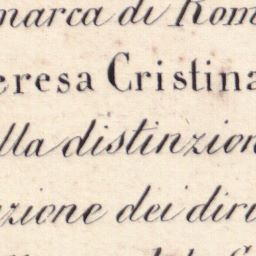 marca di Rom
eresa Cristina
lla distinzion
zione dei diri